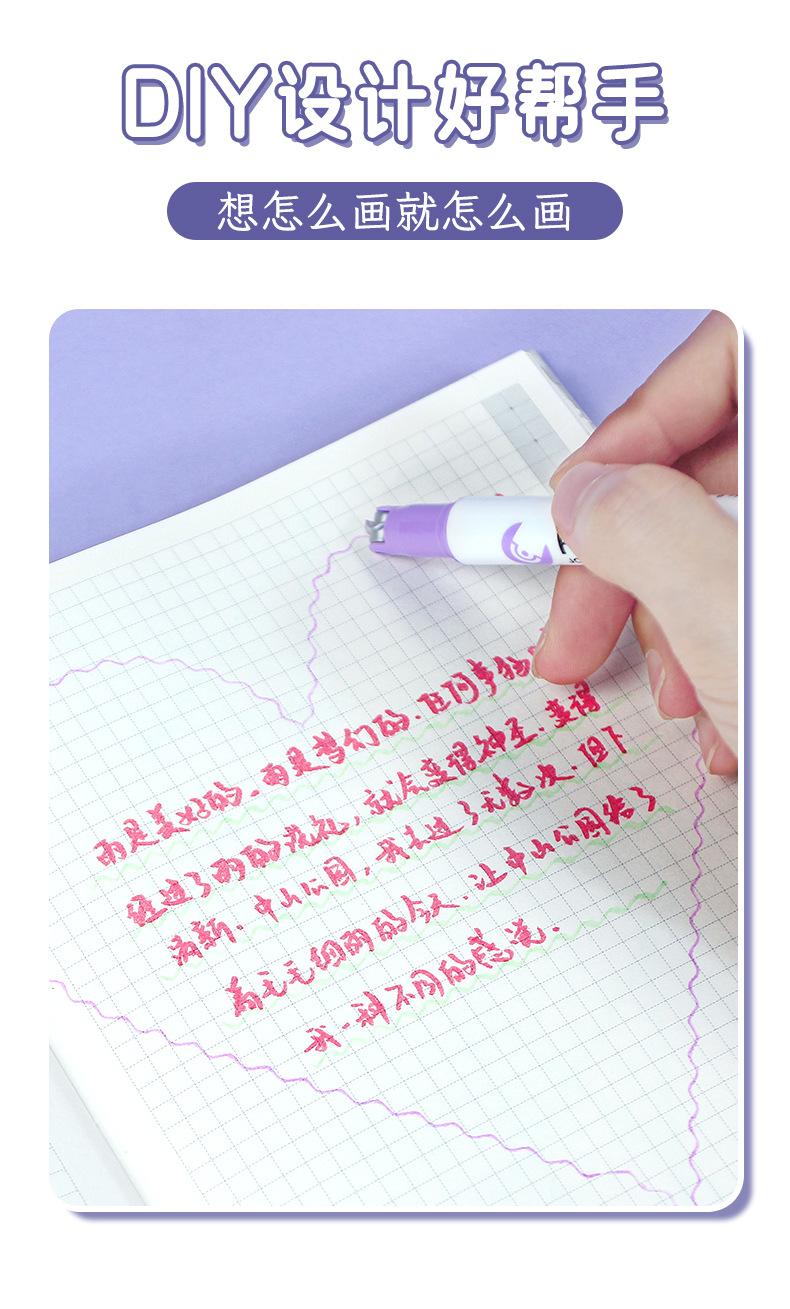 DIY设计好帮手
想怎么画就怎么画
雨是美好的.雨是梦幻的.任何事物
经过了雨的洗礼,就会变得神圣.变得
清新.中山公园,我去过了无数次.但下
着毛毛细雨的今天.让中山公园给了
我一种不同的感觉.